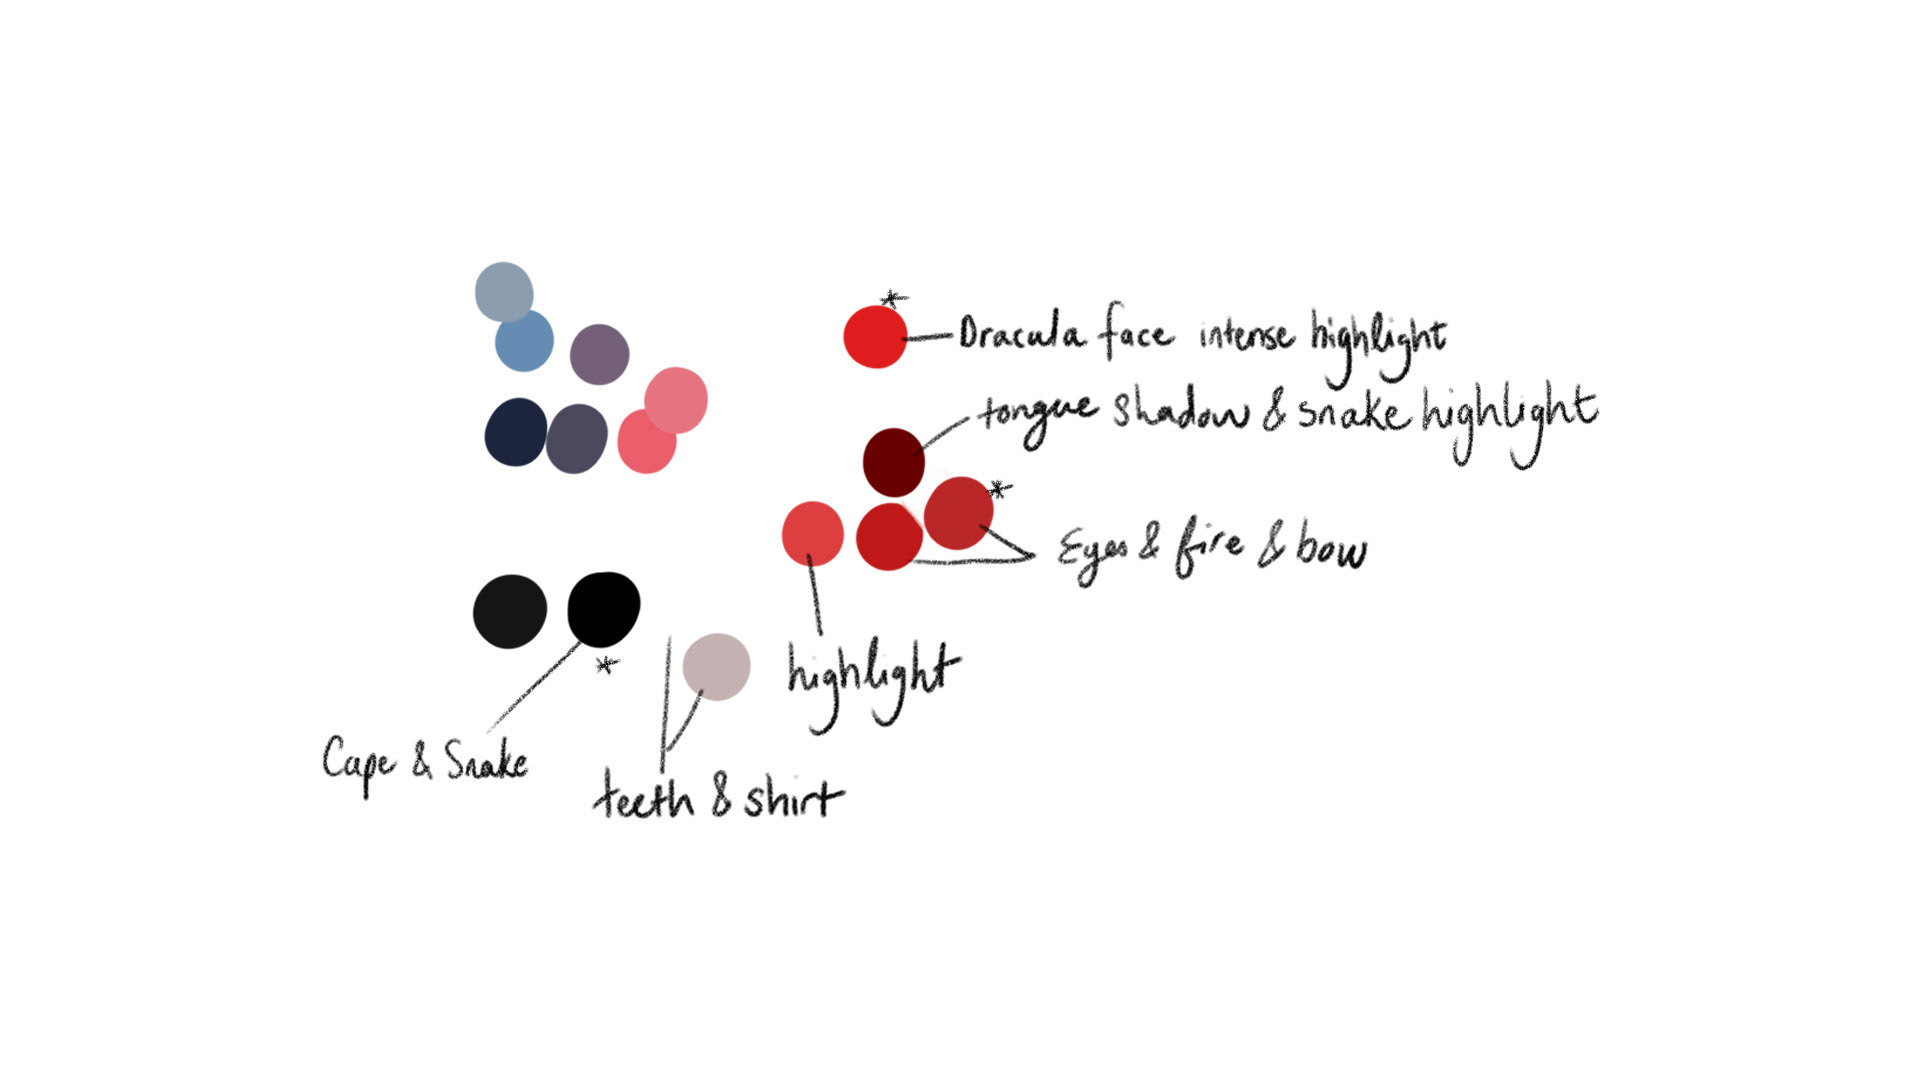 *
Dracula face intense highlight
tongue shadow & snake highlight
*
Eyes & fire & bow
*
highlight
Cape & Snake
teeth & shirt